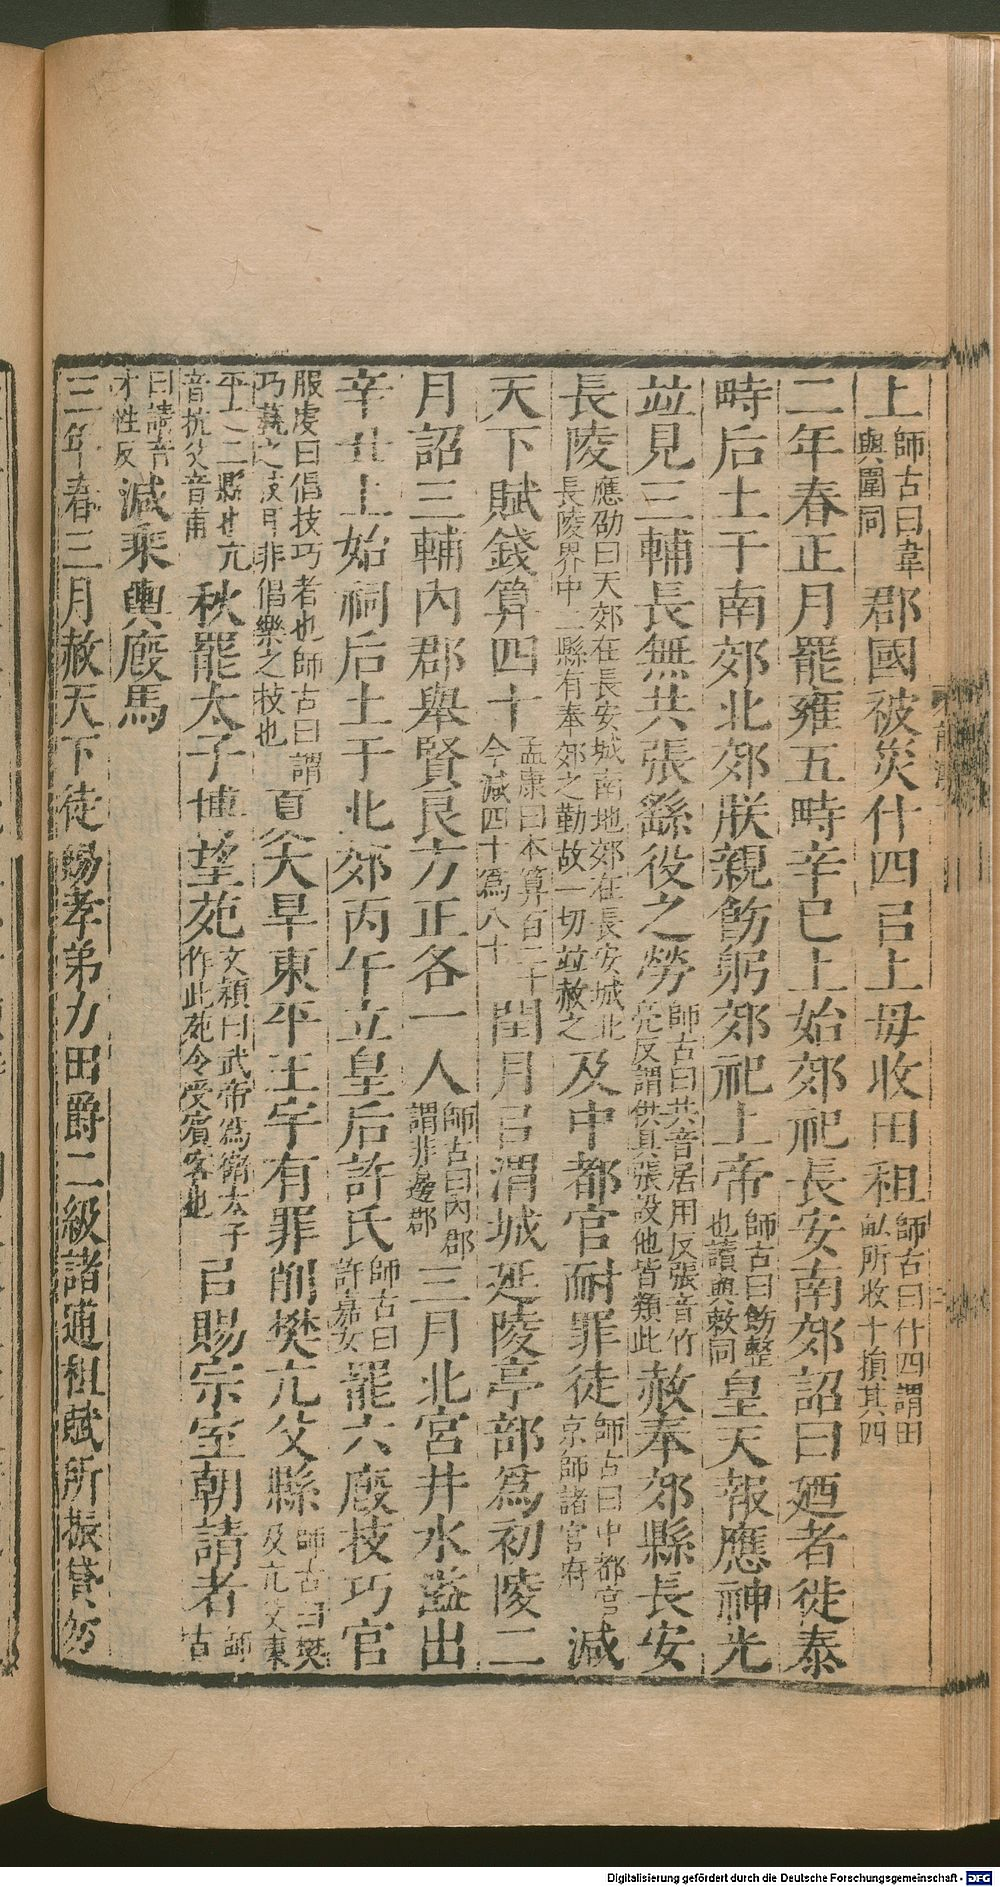 上師古曰韋與圍同郡國被災什四㠯上毋收田租師古曰什四謂田畝所收十損其四
二年春正月罷雍五畤辛巳上始郊祀長安南郊詔曰廼者徙泰
畤后土于南郊北郊朕親飭躬郊祀上帝師古曰飭整也讀與敕同皇天報應神光
並見三輔長無共張繇役之勞師古曰共音居用反張音竹亮反謂供具張設他皆類此赦奉郊縣長安
長陵應劭曰天郊在長安城南地郊在長安城北長陵界中二縣有奉郊之勤故一切並赦之及中都官耐罪徒師古曰中都官京師諸官府減
天下賦錢算四十孟康曰本算百二十今減四十爲八十閏月㠯渭城延陵亭部爲初陵二
月詔三輔內郡舉賢良方正各一人師古曰內郡謂非邊郡三月北宮井水溢出
辛丑上始祠后土于北郊丙午立皇后許氏師古曰許嘉女罷六廄技巧官
服虔曰倡技巧者也師古曰謂巧藝之技耳非倡樂之技也夏大旱東平王宇有罪削樊亢父縣師古曰樊及亢父東
平之二縣也亢音抗父音甫秋罷太子博望苑文穎曰武帝爲衛太子作此苑令受賓客也㠯賜宗室朝請者師古
曰請音才性反減乘輿廄馬
三年春三月赦天下徒賜孝弟力田爵二級諸逋租賦所振貸勿
Digitalisierung gefördert durch die Deutsche Forschungsgemeinschaft - DFG